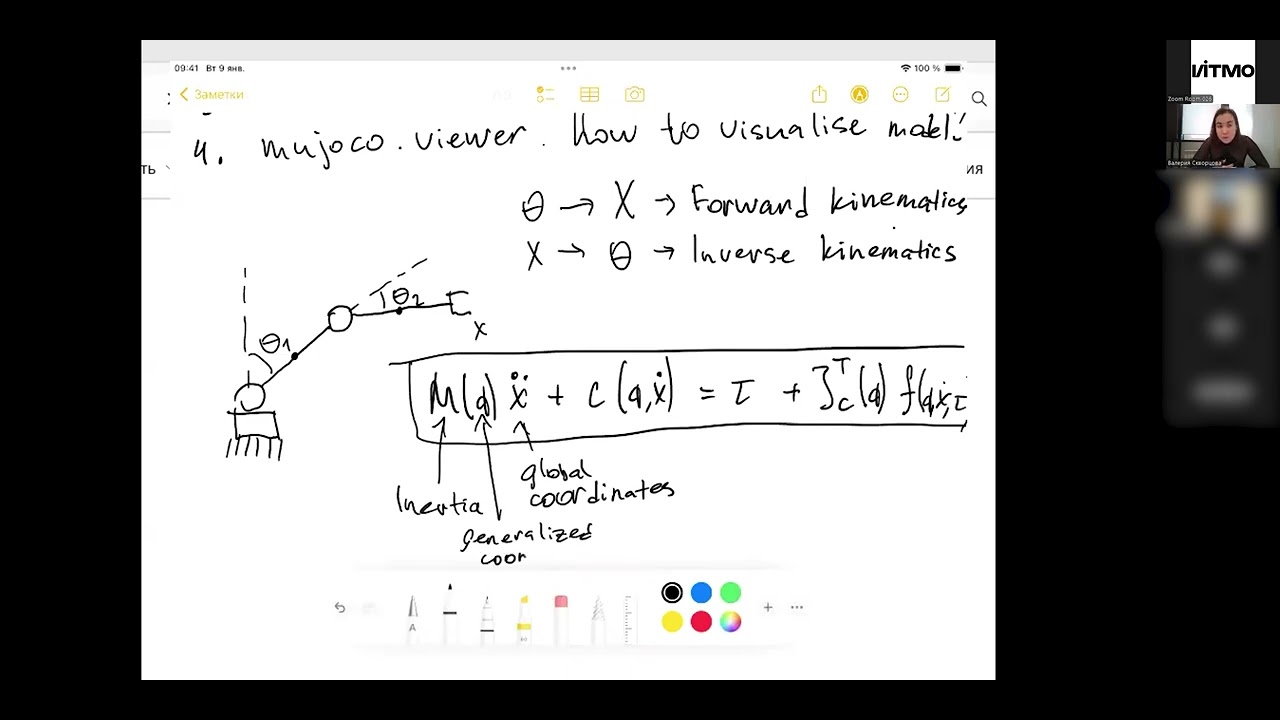 09:41 Вт 9 янв. 100 %
Заметки
4. mujoco.viewer. How to visualise model?
ть
ия
θ → X → Forward kinematics
X → θ → Inverse kinematics
θ1
θ2
x
M(q) ẍ + c (q,ẋ) = τ + J_c^T (q) f(q,ẋ,τ
Inertia
global
coordinates
generalized
coor
A
ViTMO
Zoom Room 026
Валерия Скворцова